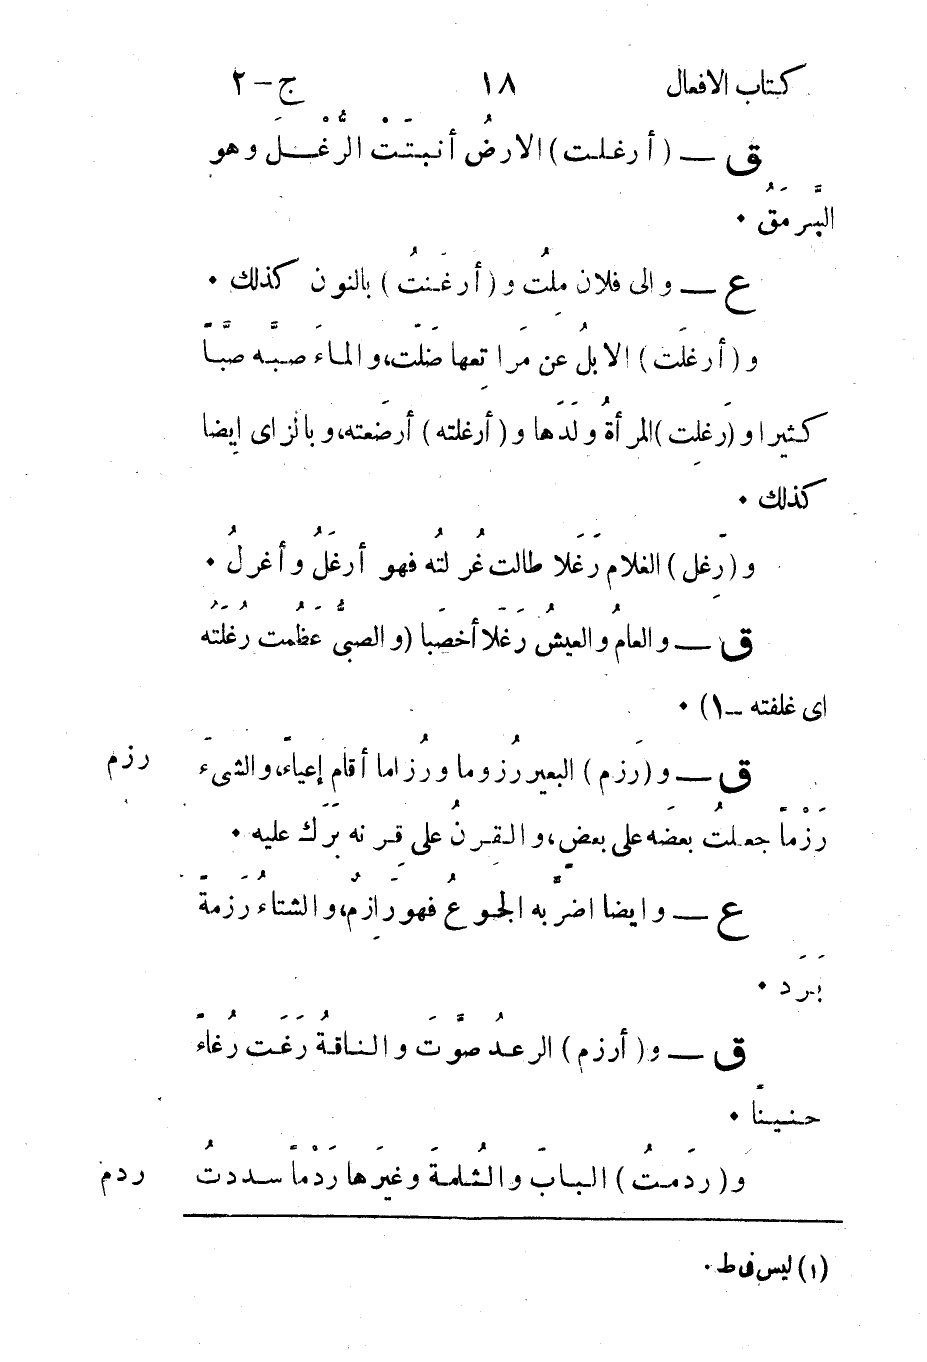 كتاب الافعال ١٨ ج – ٢
ق — (أرغلت) الارضُ أنبتَتْ الرُّغْلَ وهو
السَّرمَقُ ٠
ع — والى فلان مِلتُ و (أرغَنتُ) بالنون كذلك ٠
و (أرغلَت) الابلُ عن مَراتعِها ضَلّت، والماءَ صبَّه صبًّا
كثيرا و (رَغلِت) المرأةُ ولَدَها و (أرغلته) أرضَعته، وبالزاى ايضا
كذلك ٠
و (رَغِل) الغلامُ رَغَلا طالت غُرلتُه فهو أرغَلُ وأغرلُ ٠
ق — والعامُ والعيشُ رَغَلًا أخصَبا (والصبىُّ عَظُمت رُغلَتُه
اى غلفته –١) ٠
ق — و (رَزم) البعيرُ رُزوما ورُزاما أقام إعياءً، والشىءَ
رَزْماً جعلتُ بعضَه على بعضٍ، والقرنُ على قِرنه بَرَك عليه ٠
ع — وايضا اضرَّ به الجوعُ فهو رَازِمٌ، والشتاءُ رَزمةً
بَرَد ٠
ق — و (أرزم) الرعدُ صوَّتَ والناقةُ رَغَت رُغاءً
حنينًا ٠
و (ردَمتُ) البابَ والثُلمةَ وغيرَها رَدْماً سددتُ
رزم
ردم
(١) ليس فى ط ٠